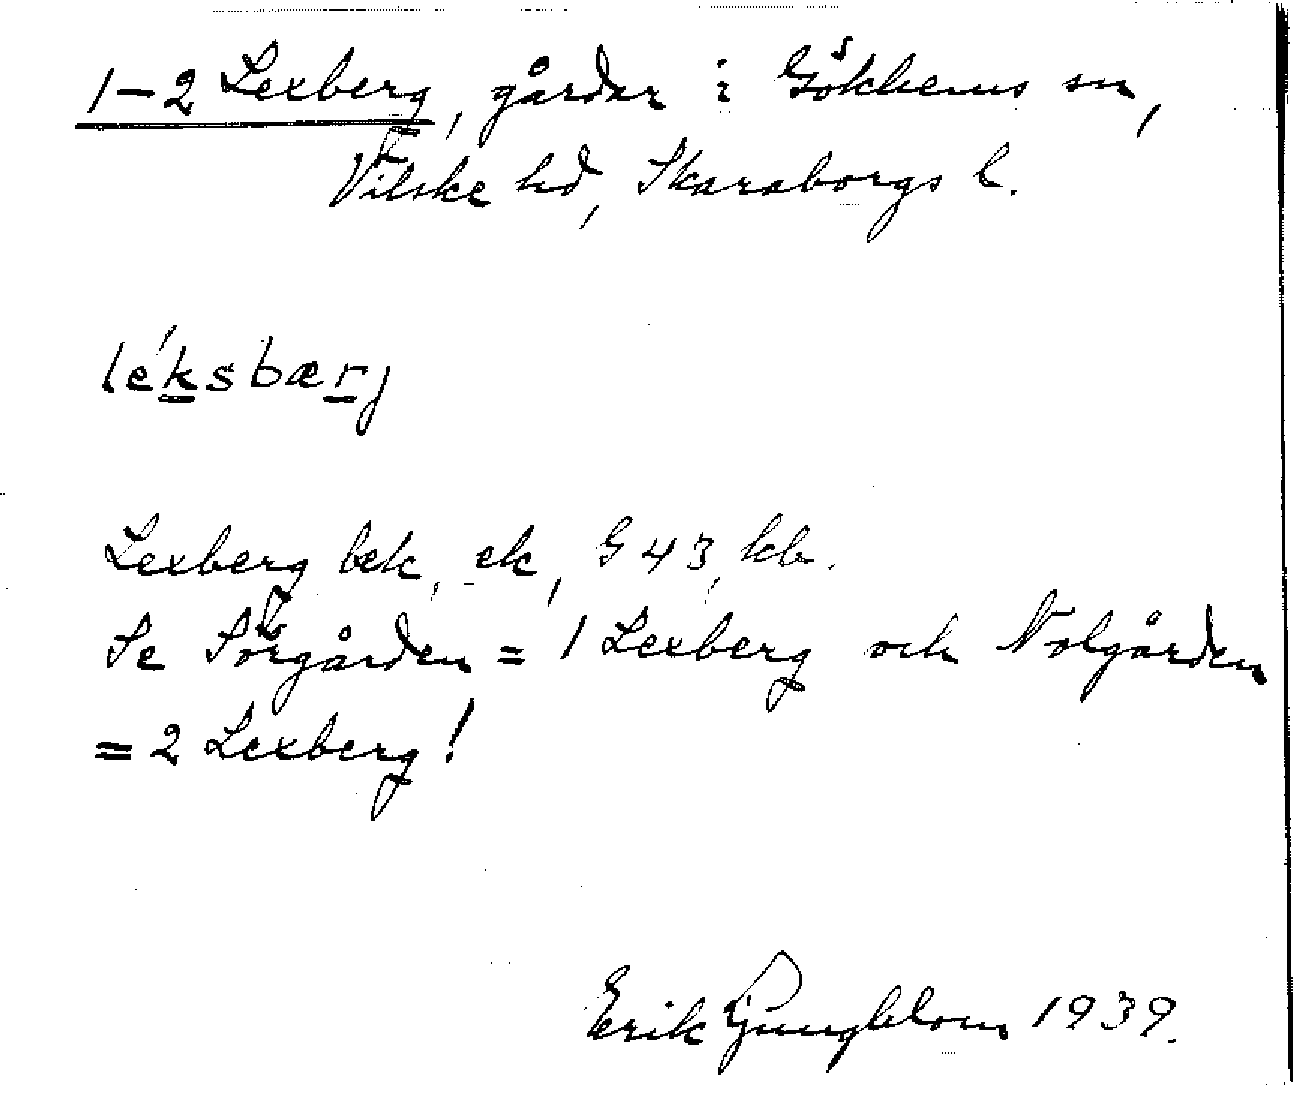 1–2 Lexberg, gårdar i Gökhems sn,
Vilske hd, Skaraborgs l.
léksbærj
Lexberg bek, ek, G 43, kb.
Se Sörgården = 1 Lexberg och Nolgården
= 2 Lexberg!
Erik Ljungblom 1939.